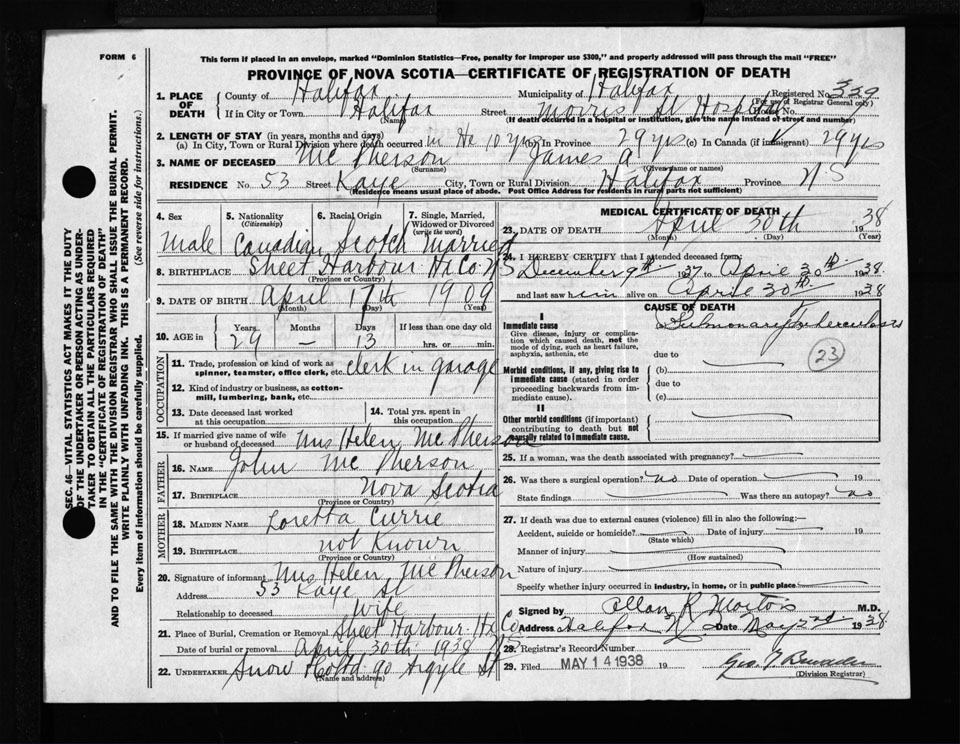 FORM 6
This form if placed in an envelope, marked "Dominion Statistics—Free, penalty for improper use $300," and properly addressed will pass through the mail "FREE"
PROVINCE OF NOVA SCOTIA—CERTIFICATE OF REGISTRATION OF DEATH
SEC. 46—VITAL STATISTICS ACT MAKES IT THE DUTY
OF THE UNDERTAKER OR PERSON ACTING AS UNDER-
TAKER TO OBTAIN ALL THE PARTICULARS REQUIRED
IN THE "CERTIFICATE OF REGISTRATION OF DEATH"
AND TO FILE THE SAME WITH THE DIVISION REGISTRAR WHO SHALL ISSUE THE BURIAL PERMIT.
WRITE PLAINLY WITH UNFADING INK. THIS IS A PERMANENT RECORD.
Every item of information should be carefully supplied. (See reverse side for instructions.)
1. PLACE OF DEATH County of Halifax Municipality of Halifax Registered No. 339
(For use of Registrar General only)
If in City or Town Halifax Street Morris St Hospital House No.
(Name) (If death occurred in a hospital or institution, give the name instead of street and number)
2. LENGTH OF STAY (in years, months and days)
(a) In City, Town or Rural Division where death occurred in Hx 10 yrs (b) In Province 29 yrs (c) In Canada (if immigrant) 29 yrs
3. NAME OF DECEASED Mc Pherson James A
(Surname) (Given name or names)
RESIDENCE No. 53 Street Kaye City, Town or Rural Division Halifax Province N S
(Residence means usual place of abode. Post Office Address for residents in rural parts not sufficient)
4. Sex 5. Nationality (Citizenship) 6. Racial Origin 7. Single, Married, Widowed or Divorced (write the word)
Male Canadian Scotch Married
8. BIRTHPLACE Sheet Harbour Hx Co N S
(Province or Country)
9. DATE OF BIRTH April 17th 1909
(Month) (Day) (Year)
10. AGE in Years Months Days If less than one day old
29 — 13 hrs. or min.
OCCUPATION
11. Trade, profession or kind of work as spinner, teamster, office clerk, etc. clerk in garage
12. Kind of industry or business, as cotton-mill, lumbering, bank, etc.
13. Date deceased last worked at this occupation
14. Total yrs. spent in this occupation
15. If married give name of wife or husband of deceased Mrs Helen Mc Pherson
FATHER
16. NAME John Mc Pherson
17. BIRTHPLACE Nova Scotia
(Province or Country)
MOTHER
18. MAIDEN NAME Loretta Currie
19. BIRTHPLACE not Known
(Province or Country)
20. Signature of informant Mrs Helen Mc Pherson
Address 53 Kaye St
Relationship to deceased Wife
21. Place of Burial, Cremation or Removal Sheet Harbour Hx Co
Date of burial or removal April 30th 1938 N S
22. UNDERTAKER Snow & Co Ltd 90 Argyle St
(Name and address)
MEDICAL CERTIFICATE OF DEATH
23. DATE OF DEATH April 30th 1938
(Month) (Day) (Year)
24. I HEREBY CERTIFY that I attended deceased from:
December 9th 1937 to April 30th 1938
and last saw him alive on April 30th 1938
CAUSE OF DEATH
I
Immediate cause
Give disease, injury or complication which caused death, not the mode of dying, such as heart failure, asphyxia, asthenia, etc
Pulmonary Tuberculosis
due to
23
Morbid conditions, if any, giving rise to immediate cause (stated in order proceeding backwards from immediate cause).
(b)
due to
(c)
II
Other morbid conditions (if important) contributing to death but not causally related to immediate cause.
25. If a woman, was the death associated with pregnancy?
26. Was there a surgical operation? no Date of operation 19
State findings Was there an autopsy? no
27. If death was due to external causes (violence) fill in also the following:—
Accident, suicide or homicide? Date of injury 19
(State which)
Manner of injury
(How sustained)
Nature of injury
Specify whether injury occurred in industry, in home, or in public place
Signed by Allan R Morton M.D.
Address Halifax N S Date May 2nd 1938
28. Registrar's Record Number
29. Filed MAY 14 1938 19
(Division Registrar)